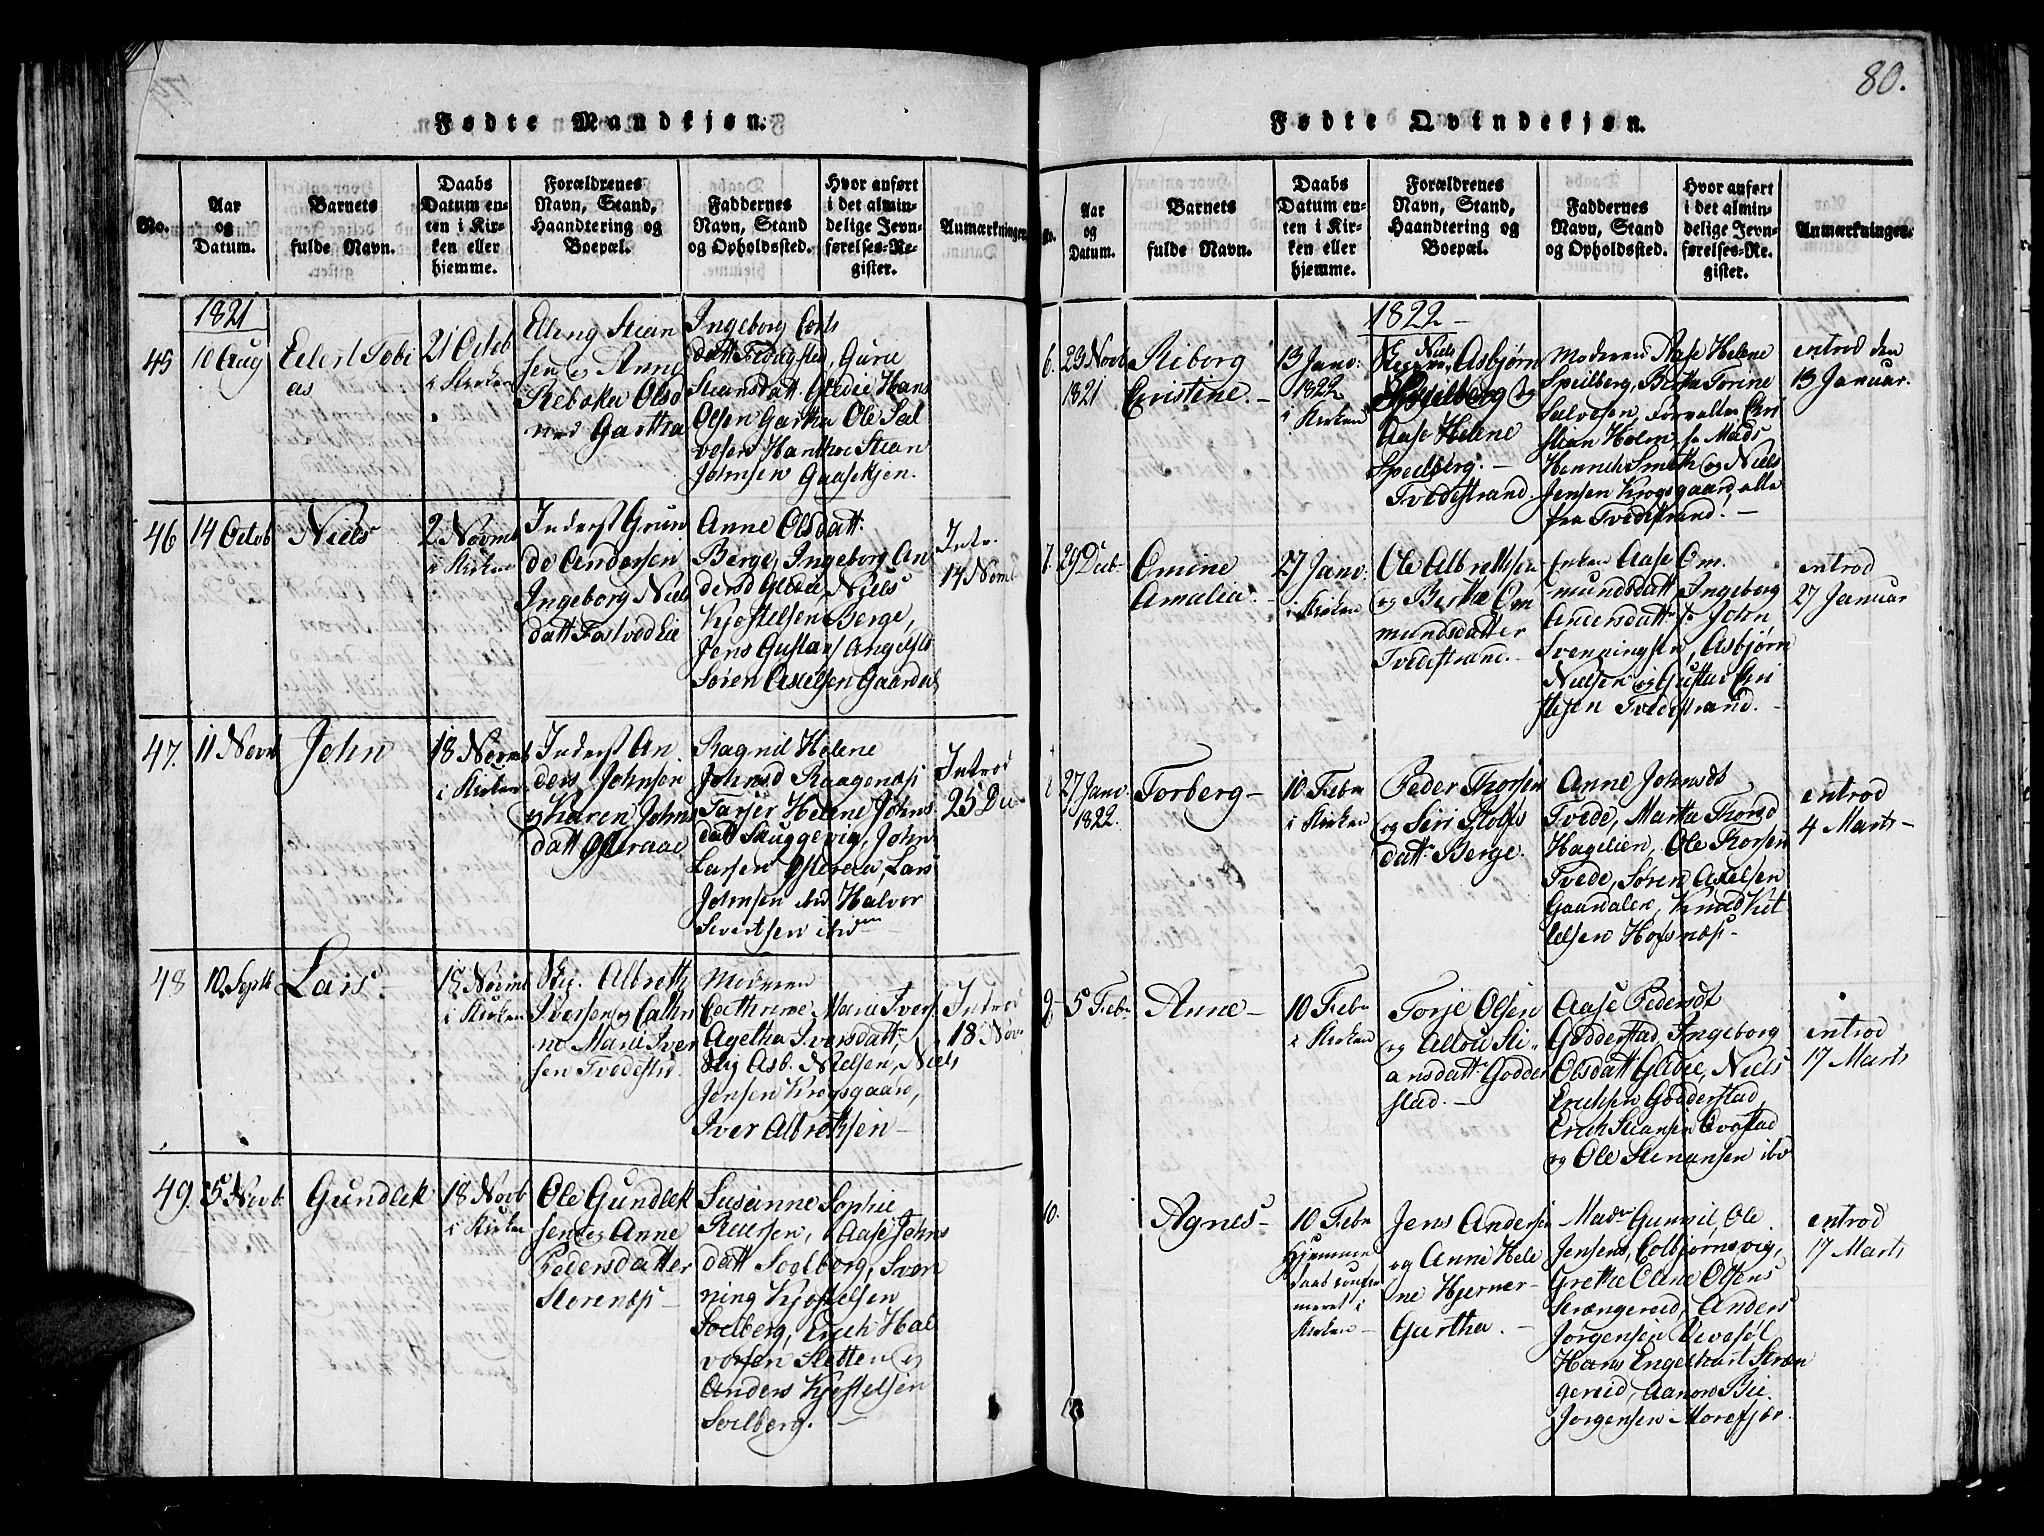 80.
Fødte Mandkjøn.
No.
Aar
og
Datum.
Barnets
fulde Navn.
Daabs
Datum en-
ten i Kir-
ken eller
hjemme.
Forældrenes
Navn, Stand,
Haandtering og
Boepæl.
Faddernes
Navn, Stand
og Opholdssted.
Hvor anført
i det almin-
delige Jevn-
førelses-Re-
gister.
Anmærkninger.
1821
45
10 Aug
Eilert Tobi
as
21 Octob
i Kirken
Elleng Stian
sen og Anne
Rebekca Olsd
Gartha
Ingeborg
datt
Gurie
Stiansdatt. Glidie Hans
Olsen Gartha Ole Sal
vesen Stian
Johnsen Gaasekjen.
46
14 Octob
Niels
2 Novmb
i Kirken
Inderst Grun
de Andersen
Ingeborg Niels
datt Fostved Eie
Anne Olsdatt.
Berge, Ingeborg An
dersd Glidie, Niels
Kjøstelsen Berge,
Jens Gustavs Angelsta
Søren Axelsen Gaardal
Intr.
14 Novmb
47.
11 Novb
John
18 Novmb
i Kirken
Inderst An
ders Johnsen
og Karen Johns
datt Østeraae
Ragnil Helene
Johnsd Raagenæs
Tarjer Helene Johns
datt Skuggevig, John
Larsen Østeraa, Lars
Johnsen ibid Halvor
Sivertsen ibidem
Introd
25 De
48
10 Septb
Lars.
18 Novmb
i Kirken
Albreth
Iversen og Cathri
ne Marie Iver
sen Tvedestrd.
Moderen
Cathrine Marie Ivers
Agetha Iversdatt,
Asb. Nielsen, Niels
Jensen Krogsgaard,
Iver Albretsen
Introd
18 Nov
49.
5 Novb.
Gundlek
18 Novb
i Kirken
Ole Gundlek
sen og Anne
Pedersdatter
Storenæs
Susanne Sophie
Reiersen, Aase Johns
datt Soelborg, Sven
ning Kjøstelsen
Soelberg, Erich Hal
vorsen Sletten og
Anders Kjøstelsen
Soelberg.
Fødte Qvindekjøn.
No.
Aar
og
Datum.
Barnets
fulde Navn.
Daabs
Datum en-
ten i Kir-
ken eller
hjemme.
Forældrenes
Navn, Stand,
Haandtering og
Boepæl.
Faddernes
Navn, Stand
og Opholdssted.
Hvor anført
i det almin-
delige Jevn-
førelses-Re-
gister.
Anmærkninger.
1822
6.
23 Novb
1821
Riborg
Cristine.
13 Janv:
1822
i Kirken
Niels
Asbjørn
Speilberg og
Aase Helene
Speilberg.
Tvedestrand.
Moderen Aase Helene
Speilberg, Berthe Torine
Salvesen, Forvalter Chri
stian Holm, Mads
Henrich Smith og Niels
Jensen Krogsgaard, alle
fra Tvedestrand.
entrod den
13 Januar.
7.
29 Decb
Omine
Amalia.
27 Janv:
i Kirken
Ole Albrethsen
og Berthe Om
mundsdatter
Tvedestrand.
Enken Aase Om
mundsdatt Ingeborg
Andersdatt John
Svenningsen, Asbjørn
Nielsen og Gustav Cri
stisen Tvedestrand.
entrod
27 Januar
27 Janv
1822.
Torberg
10 Febr
i Kirken
Peder Thorsen
og Siri Rolfs
datt. Berge.
Anne Johnsdt
Tvede, Marthe Thorsd
Hagelien, Ole Thorsen
Tvede, Søren Axelsen
Gaardalen, Knud Ket
telsen Hofsnæs
entrod
4 Marts
9
5 Febr
Anne
10 Febr
i Kirken
Torje Olsen
og Allou Sti
ansdatt. Godder
stad.
Aase Pedersdt
Godderstad, Ingeborg
Olsdatt Glidie, Niels
Erichsen Godderstad,
Erich Stiansen Qvastad
og Ole Steinansen ibd
entrod
17 Marts
10.
Agnes
10 Febr
Hjemme
daab confir
meret i
Kirken
Jens Andersen
og Anne Hele
ne Hjerner
Gartha.
Madm Gunnil, Ole
Jensens, Colbjørnsvig,
Grethe Oline Olsens
Strængereid, Anders
Jørgensen Vevesøl
Hans Engelhart Stræn
gereid, Aanon Bie
Jørgensen Morefjær.
entrod
17 Marts